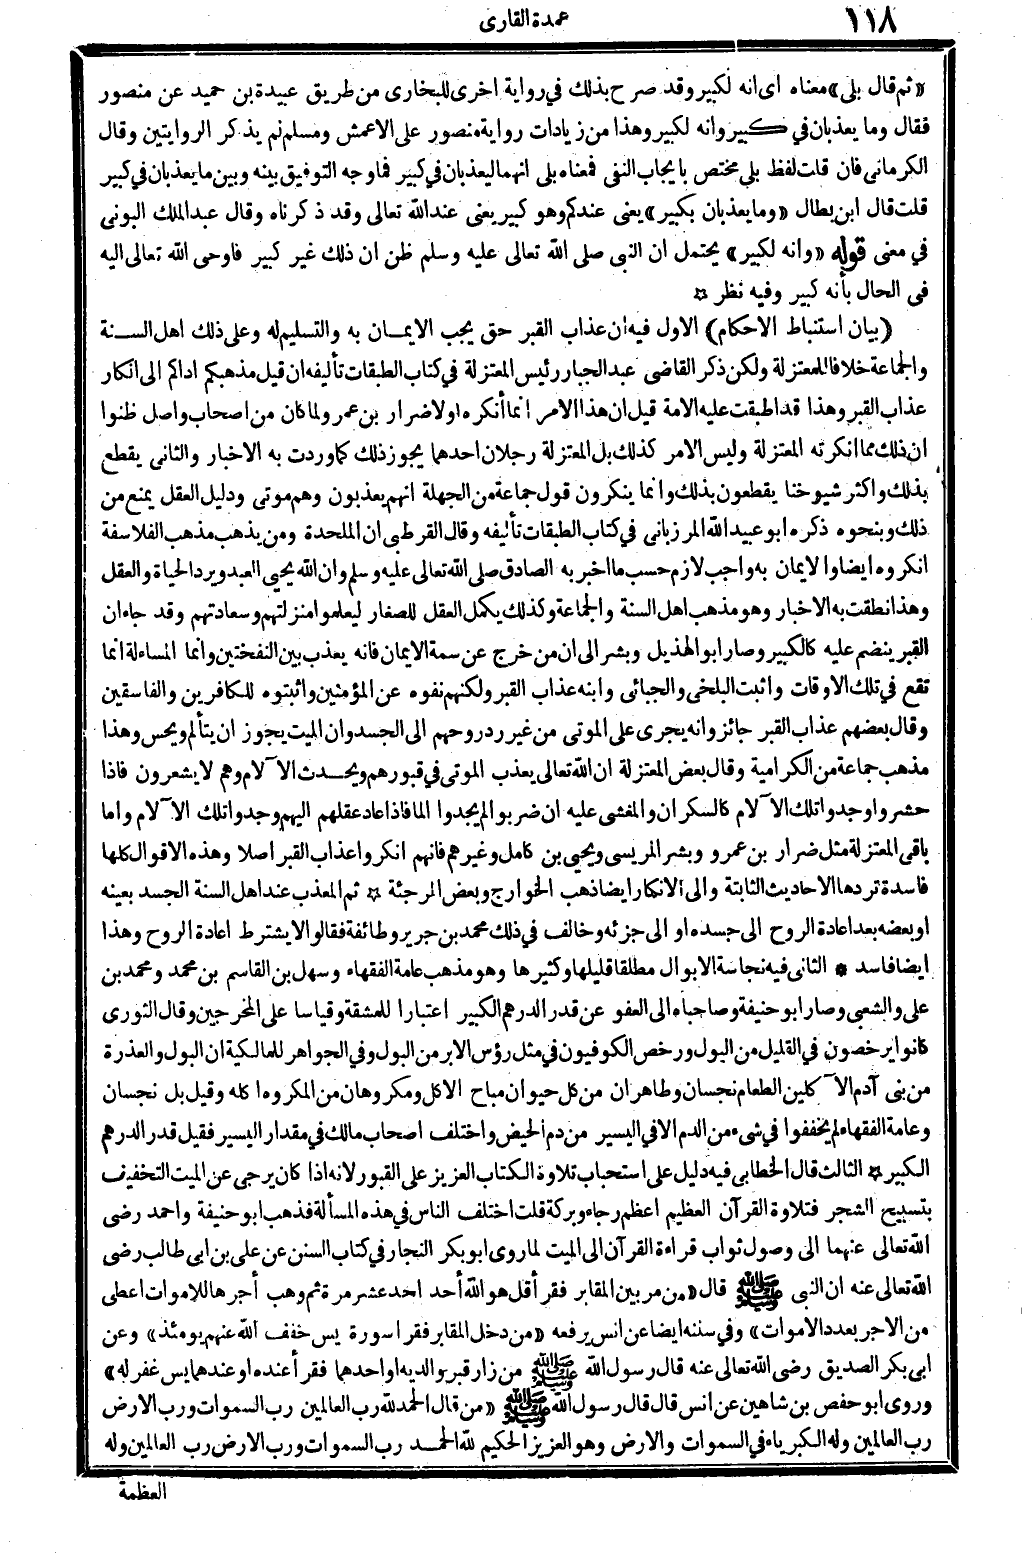 ١١٨
عمدة القارى
«ثم قال بلى» معناه اى انه لكبير وقد صرح بذلك فى رواية اخرى للبخارى من طريق عبيدة بن حميد عن منصور
فقال وما يعذبان في كبير وانه لكبير وهذا من زيادات رواية منصور على الاعمش ومسلم لم يذكر الروايتين وقال
الكرمانى فان قلت لفظ بلى مختص بايجاب النفى فمعناه بلى انهما ليعذبان في كبير فما وجه التوفيق بينه وبين ما يعذبان في كبير
قلت قال ابن بطال «وما يعذبان بكبير» يعنى عندكم وهو كبير يعنى عند الله تعالى وقد ذكرناه وقال عبد الملك البونى
في معنى قوله «وانه لكبير» يحتمل ان النبى صلى الله تعالى عليه وسلم ظن ان ذلك غير كبير فاوحى الله تعالى اليه
فى الحال بأنه كبير وفيه نظر ✡
(بيان استنباط الاحكام) الاول فيه ان عذاب القبر حق يجب الايمان به والتسليم له وعلى ذلك اهل السنة
والجماعة خلافا للمعتزلة ولكن ذكر القاضى عبد الجبار رئيس المعتزلة في كتاب الطبقات تأليفه ان قيل مذهبكم اداكم الى انكار
عذاب القبر وهذا قد اطبقت عليه الامة قيل ان هذا الامر انما أنكره اولا ضرار بن عمرو لما كان من اصحاب واصل ظنوا
ان ذلك مما انكرته المعتزلة وليس الامر كذلك بل المعتزلة رجلان احدهما يجوز ذلك كما وردت به الاخبار والثانى يقطع
بذلك واكثر شيوخنا يقطعون بذلك وانما ينكرون قول جماعة من الجهلة انهم يعذبون وهم موتى ودليل العقل يمنع من
ذلك وبنحوه ذكره ابو عبيد الله المرزبانى في كتاب الطبقات تأليفه وقال القرطبى ان الملحدة ومن يذهب مذهب الفلاسفة
انكروه ايضا والايمان به واجب لازم حسب ما اخبر به الصادق صلى الله تعالى عليه وسلم وان الله يحيى العبد ويرد الحياة والعقل
وهذا نطقت به الاخبار وهو مذهب اهل السنة والجماعة وكذلك يكمل العقل للصغار ليعلموا منزلتهم وسعادتهم وقد جاء ان
القبر ينضم عليه كالكبير وصار ابو الهذيل وبشر الى ان من خرج عن سمة الايمان فانه يعذب بين النفختين وانما المساءلة انما
تقع في تلك الاوقات واثبت البلخى والجبائى وابنه عذاب القبر ولكنهم نفوه عن المؤمنين واثبتوه للكافرين والفاسقين
وقال بعضهم عذاب القبر جائز وانه يجرى على الموتى من غير رد روحهم الى الجسد وان الميت يجوز ان يتألم ويحس وهذا
مذهب جماعة من الكرامية وقال بعض المعتزلة ان الله تعالى يعذب الموتى في قبورهم ويحدث الآلام وهم لا يشعرون فاذا
حشروا وجدوا تلك الآلام كالسكران والمغشى عليه ان ضربوا لم يجدوا الما فاذا عاد عقلهم اليهم وجدوا تلك الآلام واما
باقى المعتزلة مثل ضرار بن عمرو وبشر المريسى ويحيى بن كامل وغيرهم فانهم انكروا عذاب القبر اصلا وهذه الاقوال كلها
فاسدة تردها الاحاديث الثابتة والى الانكار ايضا ذهب الخوارج وبعض المرجئة ✡ ثم المعذب عند اهل السنة الجسد بعينه
او بعضه بعد اعادة الروح الى جسده او الى جزئه وخالف في ذلك محمد بن جرير وطائفة فقالوا لا يشترط اعادة الروح وهذا
ايضا فاسد ✡ الثانى فيه نجاسة الابوال مطلقا قليلها وكثيرها وهو مذهب عامة الفقهاء وسهل بن القاسم بن محمد ومحمد بن
على والشعبى وصار ابو حنيفة وصاحباه الى العفو عن قدر الدرهم الكبير اعتبارا للمشقة وقياسا على المخرجين وقال الثورى
كانوا يرخصون في القليل من البول ورخص الكوفيون في مثل رؤس الابر من البول وفي الجواهر للمالكية ان البول والعذرة
من بنى آدم الآكلين الطعام نجسان وطاهران من كل حيوان مباح الاكل ومكروهان من المكروه اكله وقيل بل نجسان
وعامة الفقهاء لم يخففوا في شىء من الدم الا في اليسير من دم الحيض واختلف اصحاب مالك في مقدار اليسير فقيل قدر الدرهم
الكبير ✡ الثالث قال الخطابى فيه دليل على استحباب تلاوة الكتاب العزيز على القبور لانه اذا كان يرجى عن الميت التخفيف
بتسبيح الشجر فتلاوة القرآن العظيم اعظم رجاء وبركة قلت اختلف الناس في هذه المسألة فذهب ابو حنيفة واحمد رضى
الله تعالى عنهما الى وصول ثواب قراءة القرآن الى الميت لما روى ابو بكر النجار في كتاب السنن عن على بن ابى طالب رضى
الله تعالى عنه ان النبى ﷺ قال «من مر بين المقابر فقرأ قل هو الله أحد احد عشر مرة ثم وهب أجرها للاموات اعطى
من الاجر بعدد الاموات» وفي سننه ايضا عن انس يرفعه «من دخل المقابر فقرأ سورة يس خفف الله عنهم يومئذ» وعن
ابى بكر الصديق رضى الله تعالى عنه قال رسول الله ﷺ من زار قبر والديه او احدهما فقرأ عنده او عندهما يس غفر له»
وروى ابو حفص بن شاهين عن انس قال قال رسول الله ﷺ «من قال الحمد لله رب العالمين رب السموات ورب الارض
رب العالمين وله الكبرياء في السموات والارض وهو العزيز الحكيم لله الحمد رب السموات ورب الارض رب العالمين وله
العظمة